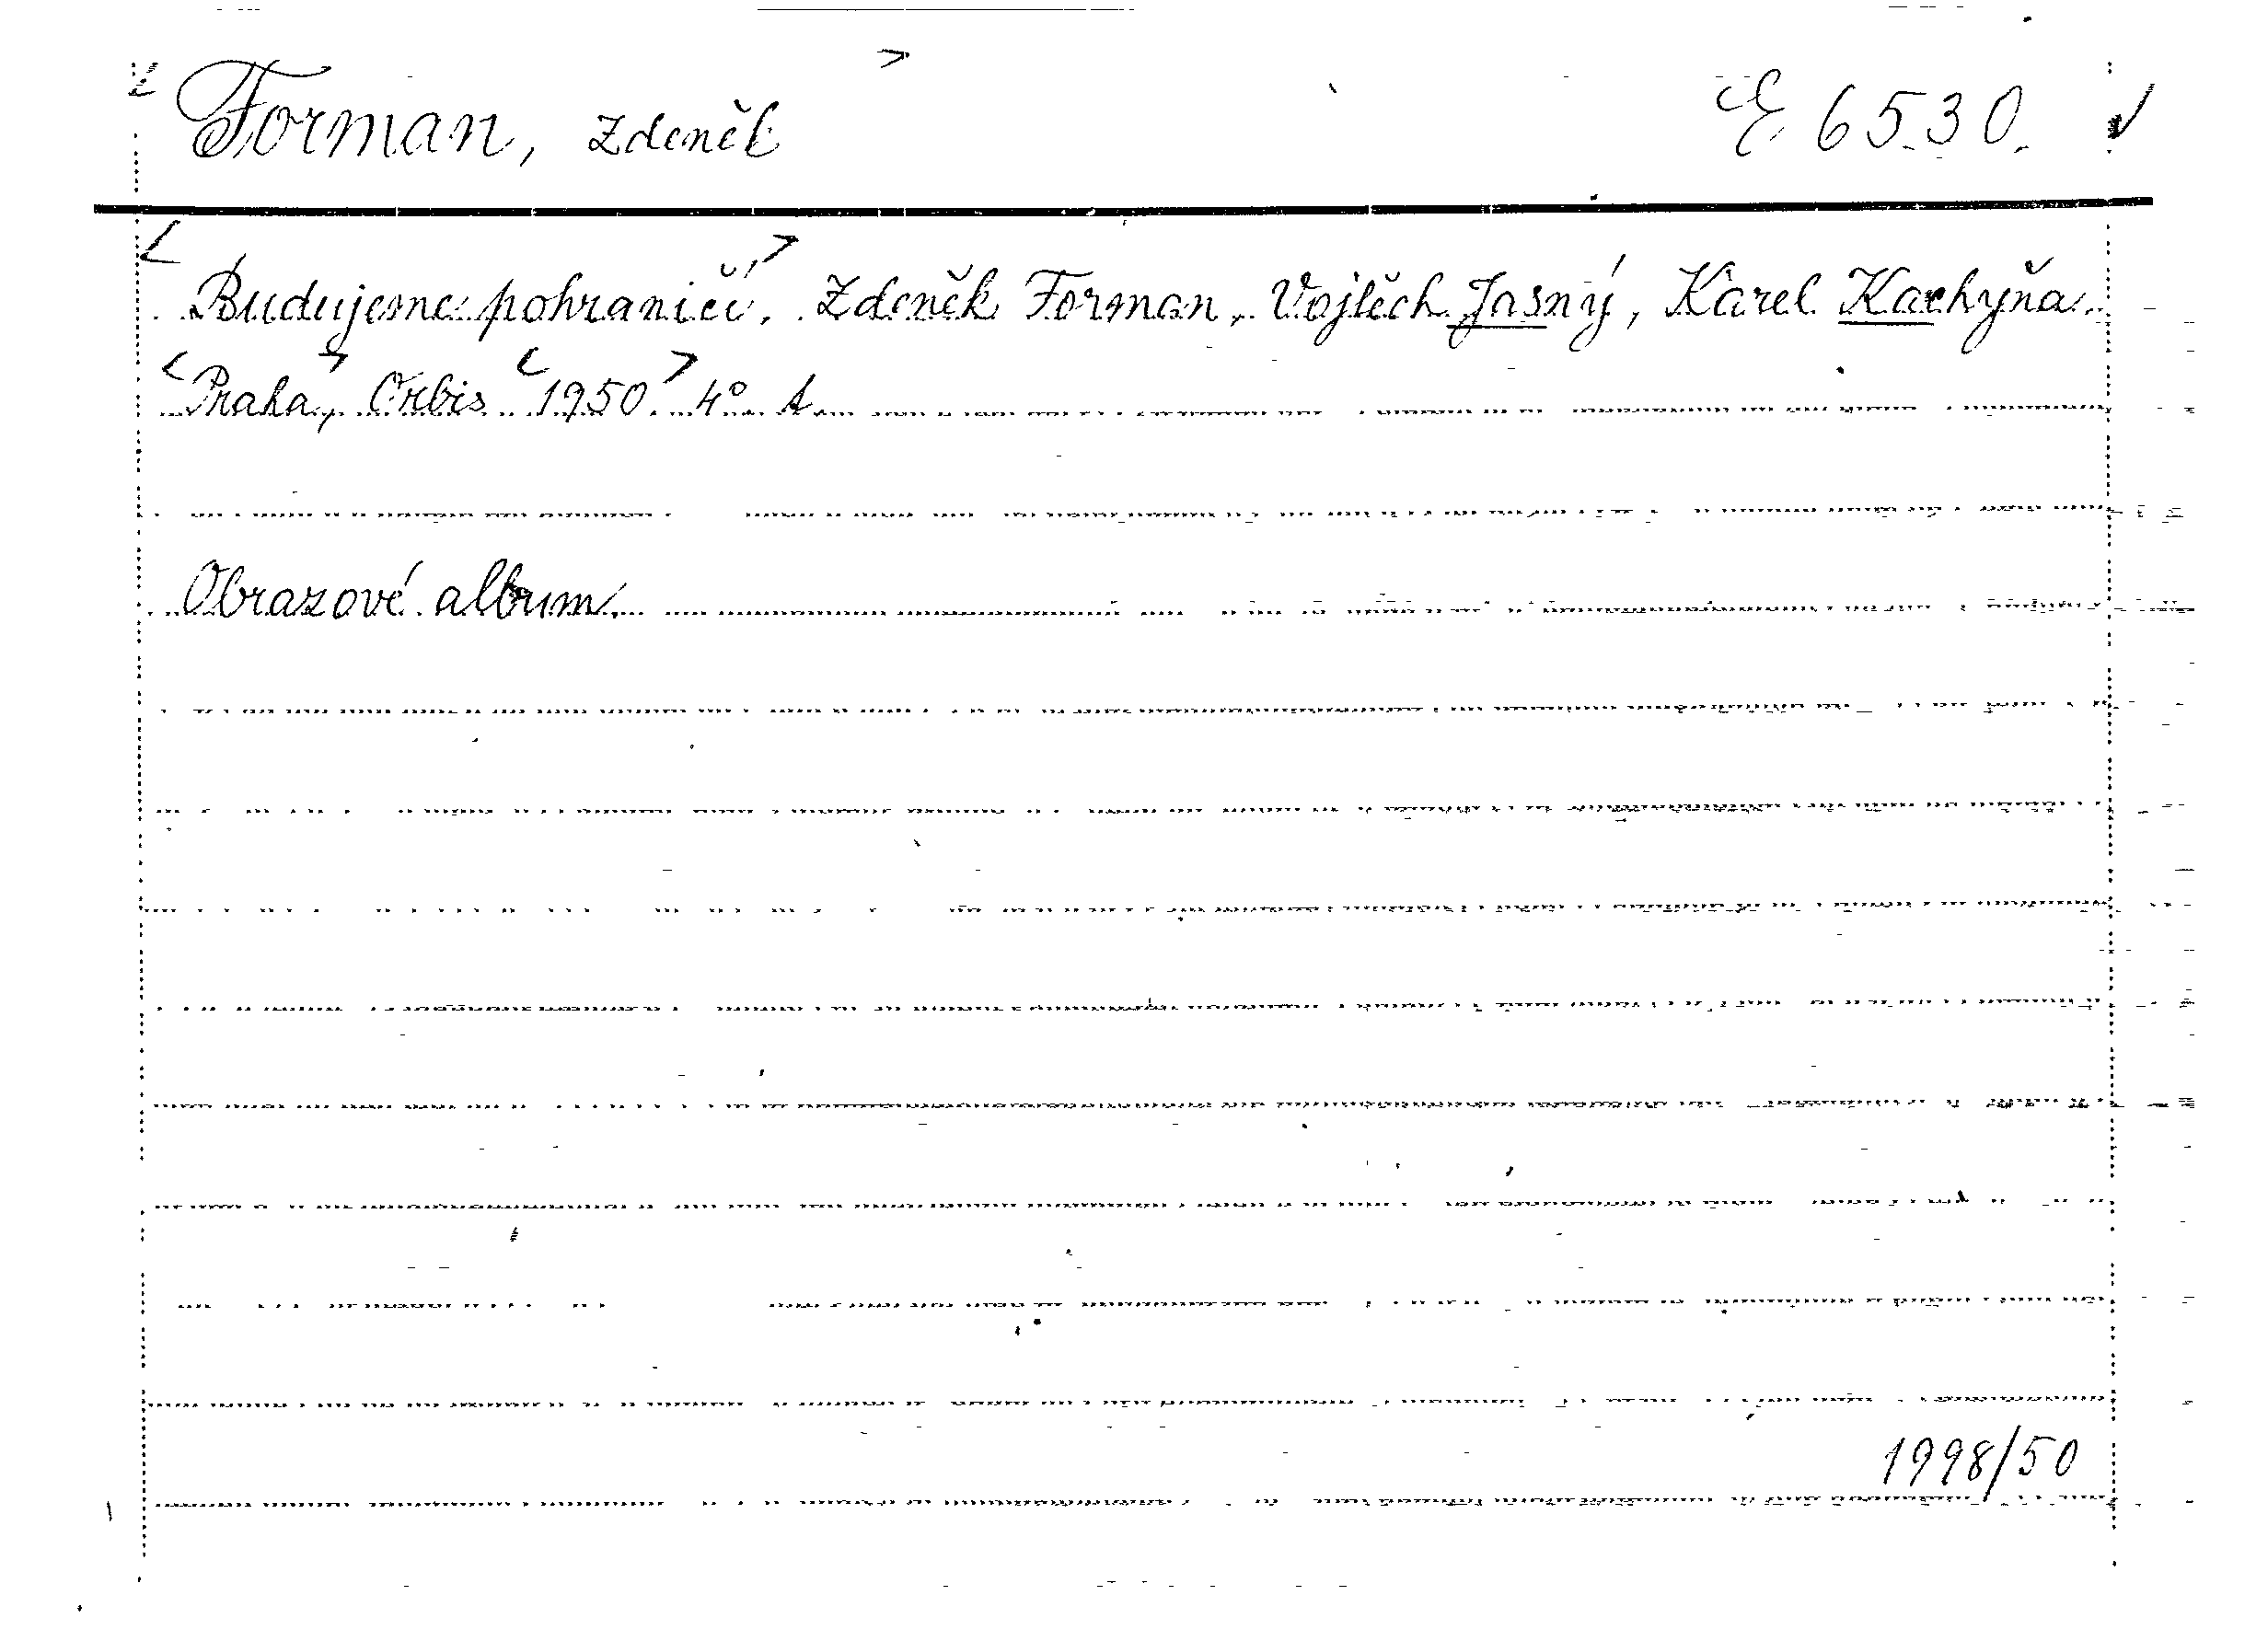 Forman, Zdeněk E 6530.
Budujeme pohraničí. Zdeněk Forman, Vojtěch Jasný, Karel Kachyňa.
Praha, Orbis 1950. 4°.
Obrazové album.
1998/50